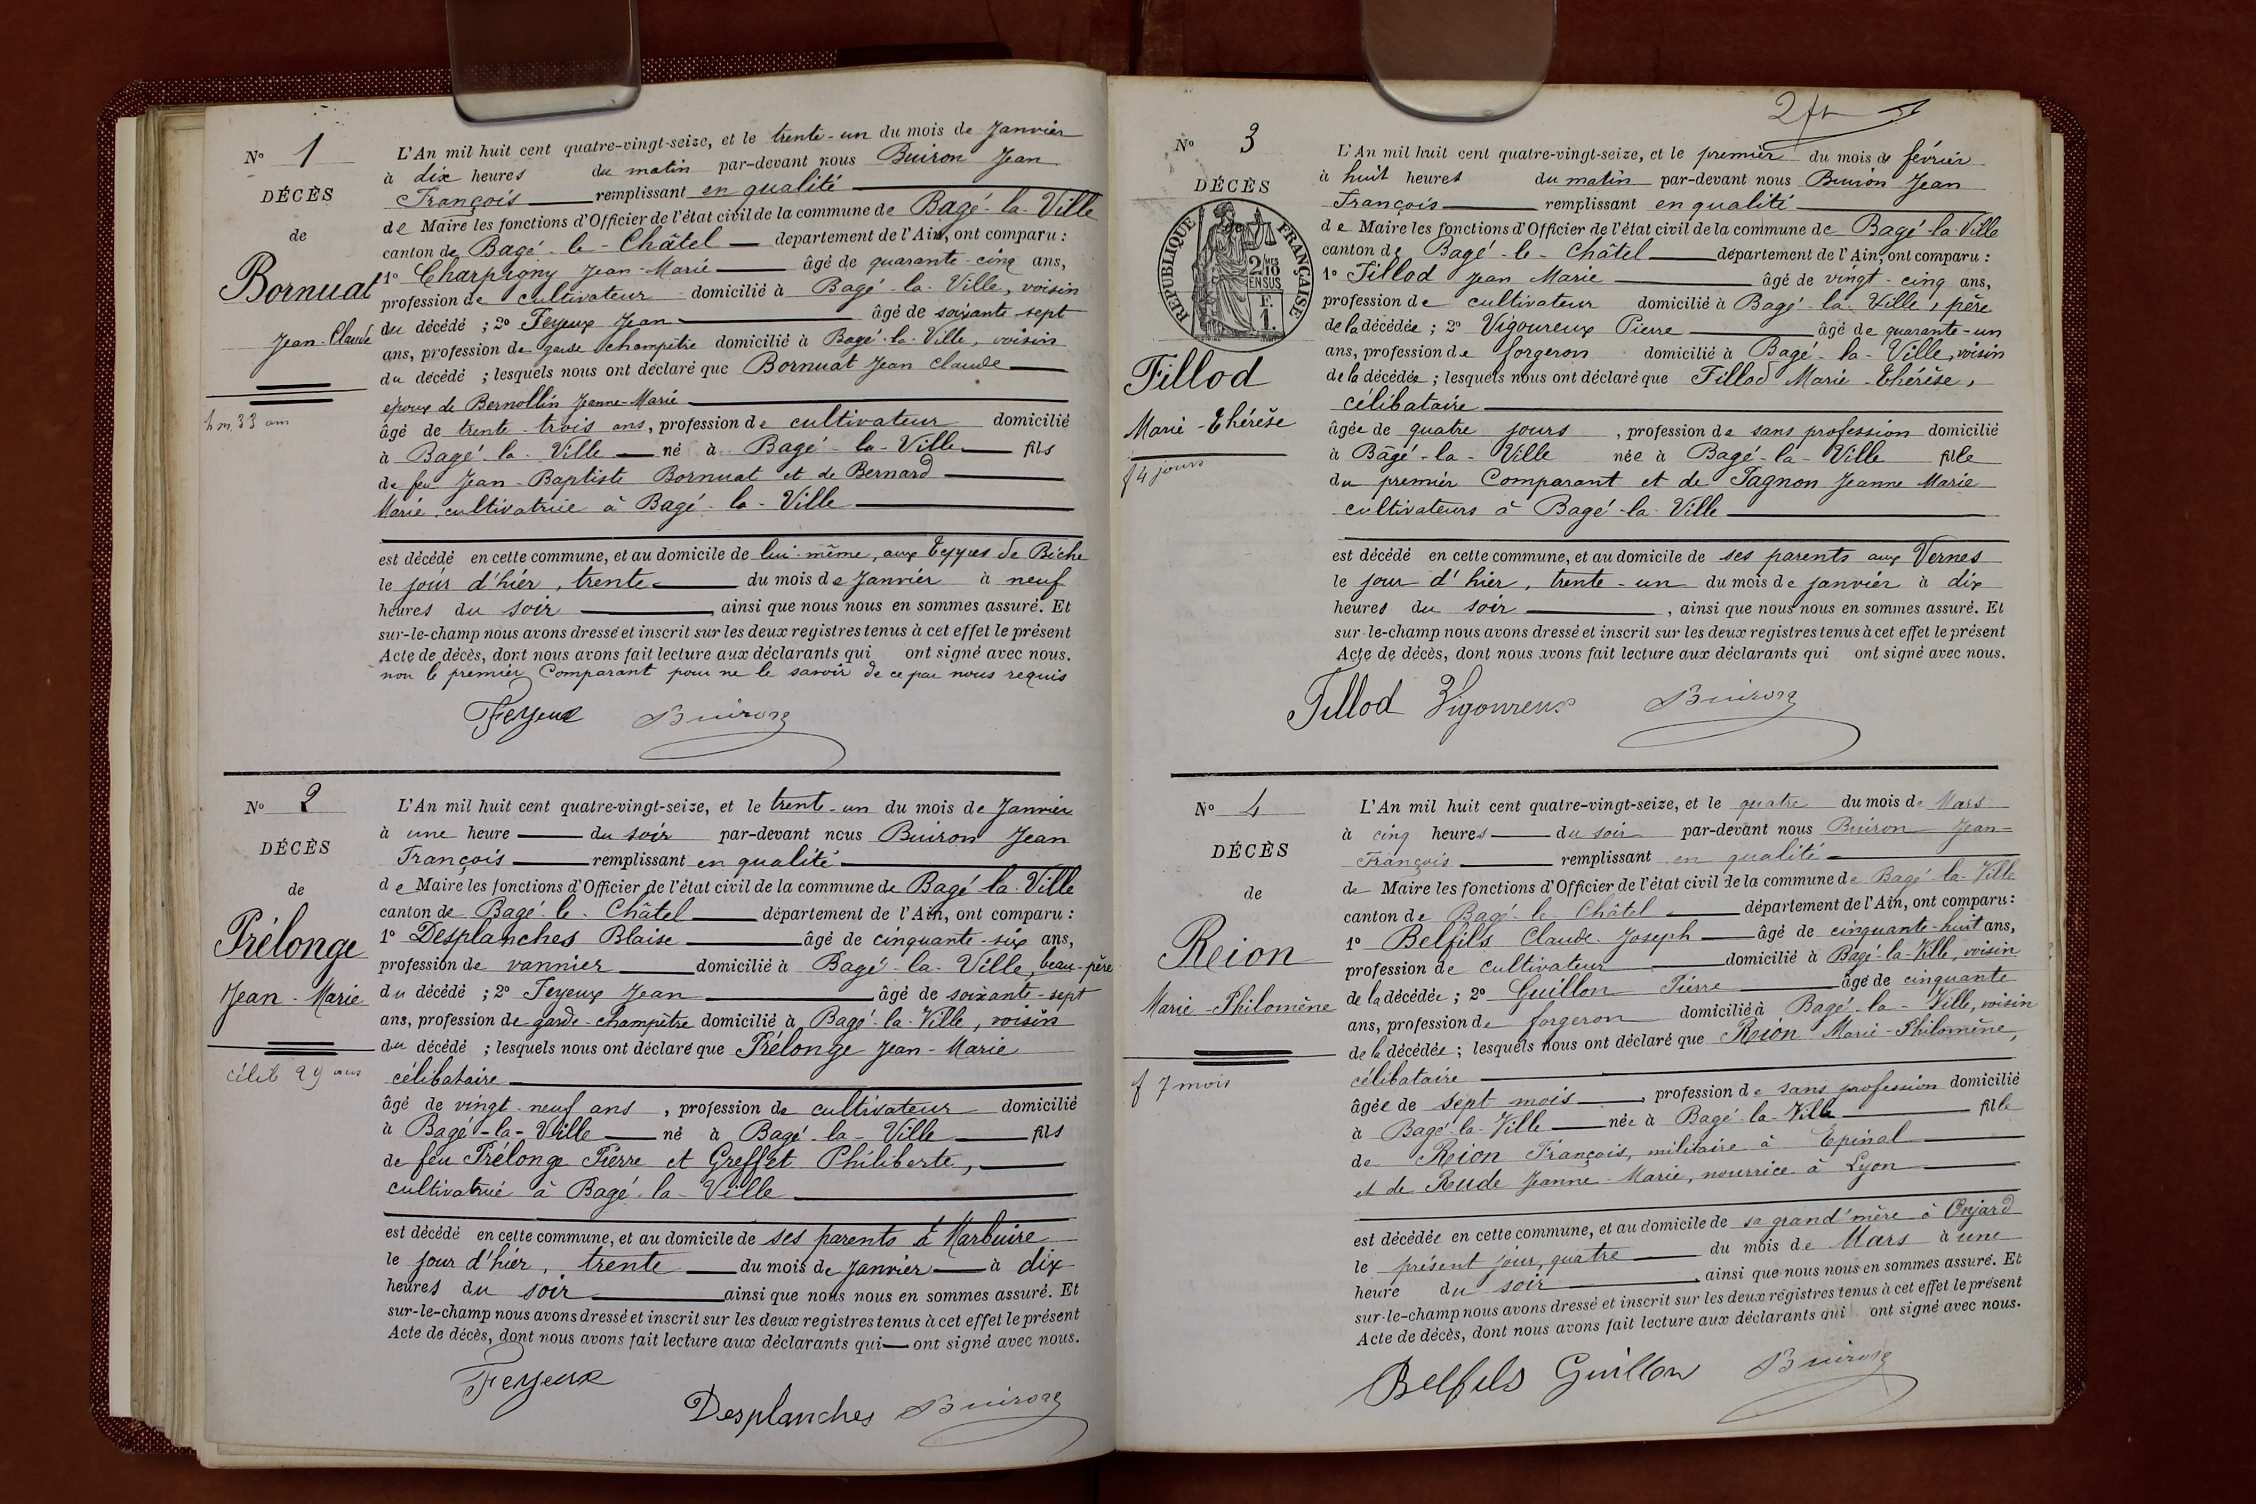 N° 1
DÉCÈS
de
Bornuat
Jean-Claude
h m. 33 ans
L'An mil huit cent quatre-vingt-seize, et le trente-un du mois de Janvier
à dix heures du matin par-devant nous Buiron Jean
François remplissant en qualité
de Maire les fonctions d'Officier de l'état civil de la commune de Bagé-la-Ville
canton de Bagé-le-Châtel département de l'Ain, ont comparu :
1° Charpigny Jean-Marie âgé de quarante-cinq ans,
profession de cultivateur domicilié à Bagé-la-Ville, voisin
du décédé ; 2° Feyeux Jean âgé de soixante sept
ans, profession de garde champêtre domicilié à Bagé-la-Ville, voisin
du décédé ; lesquels nous ont déclaré que Bornuat Jean Claude
époux de Bernollin Jeanne-Marie
âgé de trente-trois ans, profession de cultivateur domicilié
à Bagé-la-Ville né à Bagé-la-Ville fils
de feu Jean-Baptiste Bornuat et de Bernard
Marie, cultivatrice à Bagé-la-Ville
est décédé en cette commune, et au domicile de lui-même, aux Teppes de Biche
le jour d'hier, trente du mois de Janvier à neuf
heures du soir, ainsi que nous nous en sommes assuré. Et
sur-le-champ nous avons dressé et inscrit sur les deux registres tenus à cet effet le présent
Acte de décès, dont nous avons fait lecture aux déclarants qui ont signé avec nous.
non le premier Comparant pour ne le savoir de ce par nous requis
Feyeux Buiron
N° 2
DÉCÈS
de
Prélonge
Jean-Marie
célib 29 ans
L'An mil huit cent quatre-vingt-seize, et le trente-un du mois de Janvier
à une heure du soir par-devant nous Buiron Jean
François remplissant en qualité
de Maire les fonctions d'Officier de l'état civil de la commune de Bagé-la-Ville
canton de Bagé-le-Châtel département de l'Ain, ont comparu :
1° Desplanches Blaise âgé de cinquante-six ans,
profession de vannier domicilié à Bagé-la-Ville, beau-père
du décédé ; 2° Feyeux Jean âgé de soixante-sept
ans, profession de garde-champêtre domicilié à Bagé-la-Ville, voisin
du décédé ; lesquels nous ont déclaré que Prélonge Jean-Marie
célibataire
âgé de vingt-neuf ans, profession de cultivateur domicilié
à Bagé-la-Ville né à Bagé-la-Ville fils
de feu Prélonge Pierre et Greffet Philiberte,
cultivatrice à Bagé-la-Ville
est décédé en cette commune, et au domicile de ses parents à Marbuire
le jour d'hier, trente du mois de Janvier à dix
heures du soir ainsi que nous nous en sommes assuré. Et
sur-le-champ nous avons dressé et inscrit sur les deux registres tenus à cet effet le présent
Acte de décès, dont nous avons fait lecture aux déclarants qui ont signé avec nous.
Feyeux
Desplanches Buiron
2 ft
N° 3
DÉCÈS
RÉPUBLIQUE FRANÇAISE
2/10 MES
EN SUS
F.
1.
Fillod
Marie-Thérèse
f 4 jours
L'An mil huit cent quatre-vingt-seize, et le premier du mois de février
à huit heures du matin par-devant nous Buiron Jean
François remplissant en qualité
de Maire les fonctions d'Officier de l'état civil de la commune de Bagé-la-Ville
canton de Bagé-le-Châtel département de l'Ain, ont comparu :
1° Fillod Jean Marie âgé de vingt-cinq ans,
profession de cultivateur domicilié à Bagé-la-Ville, père
de la décédée ; 2° Vigoureux Pierre âgé de quarante-un
ans, profession de forgeron domicilié à Bagé-la-Ville, voisin
de la décédée ; lesquels nous ont déclaré que Fillod Marie-Thérèse,
célibataire
âgée de quatre jours, profession de sans profession domicilié
à Bâgé-la-Ville née à Bagé-la-Ville fille
du premier Comparant et de Tagnon Jeanne Marie
cultivateurs à Bagé-la-Ville
est décédé en cette commune, et au domicile de ses parents aux Vernes
le jour d'hier, trente-un du mois de janvier à dix
heures du soir, ainsi que nous nous en sommes assuré. Et
sur-le-champ nous avons dressé et inscrit sur les deux registres tenus à cet effet le présent
Acte de décès, dont nous avons fait lecture aux déclarants qui ont signé avec nous.
Fillod Vigoureux Buiron
N° 4
DÉCÈS
de
Reion
Marie-Philomène
f 7 mois
L'An mil huit cent quatre-vingt-seize, et le quatre du mois de Mars
à cinq heures du soir par-devant nous Buiron Jean-
François remplissant en qualité
de Maire les fonctions d'Officier de l'état civil de la commune de Bagé-la-Ville
canton de Bagé-le-Châtel département de l'Ain, ont comparu :
1° Belfils Claude-Joseph âgé de cinquante-huit ans,
profession de cultivateur domicilié à Bagé-la-Ville, voisin
de la décédée ; 2° Guillon Pierre âgé de cinquante
ans, profession de forgeron domicilié à Bagé-la-Ville, voisin
de la décédée ; lesquels nous ont déclaré que Reion Marie-Philomène,
célibataire
âgée de sept mois, profession de sans profession domicilié
à Bagé-la-Ville née à Bagé-la-Ville fille
de Reion François, militaire à Epinal
et de Rude Jeanne-Marie, nourrice à Lyon
est décédée en cette commune, et au domicile de sa grand'mère à Onjard
le présent jour, quatre du mois de Mars à une
heure du soir, ainsi que nous nous en sommes assuré. Et
sur-le-champ nous avons dressé et inscrit sur les deux registres tenus à cet effet le présent
Acte de décès, dont nous avons fait lecture aux déclarants qui ont signé avec nous.
Belfils Guillon Buiron